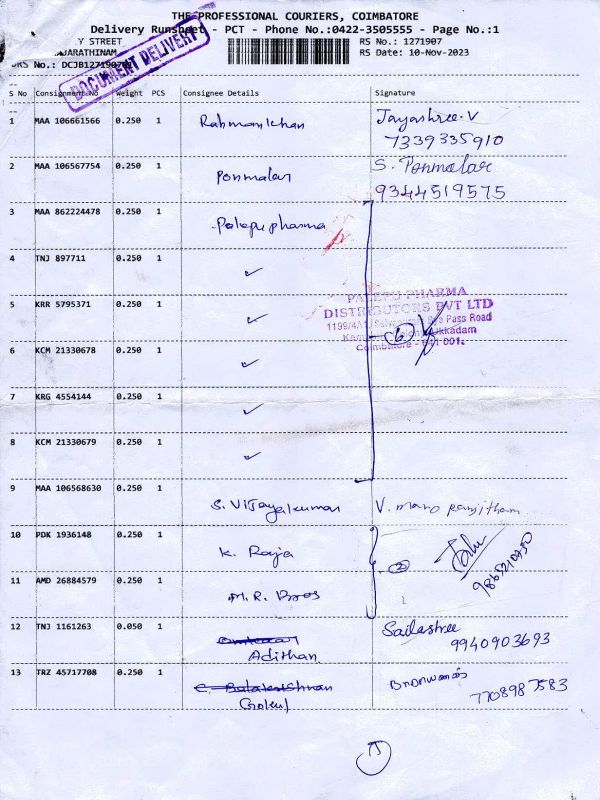 THE PROFESSIONAL COURIERS, COIMBATORE
Delivery Runsheet - PCT - Phone No.:0422-3505555 - Page No.:1
Y STREET RS No.: 1271907
JARATHINAM RS Date: 10-Nov-2023
DRS No.: DCJB1271907
DOCUMENT DELIVERY
S No Consignment No Weight PCS Consignee Details Signature
1 MAA 106661566 0.250 1 Rahman khan Jayashree.V
7339335910
2 MAA 106567754 0.250 1 Ponmalar S. Ponmalar
9344519575
3 MAA 862224478 0.250 1 Palepu pharma
4 TNJ 897711 0.250 1 ✓
PALEPU PHARMA
DISTRIBUTORS PVT LTD
5 KRR 5795371 0.250 1 ✓
1199/4A1, Bye Pass Road
Ukkadam
6 KCM 21330678 0.250 1 ✓ 6
Coimbatore - 641 001.
7 KRG 4554144 0.250 1 ✓
8 KCM 21330679 0.250 1 ✓
9 MAA 106568630 0.250 1 S. Vijayakumar V. mano ranjitham
10 PDK 1936148 0.250 1 K. Raja
2
11 AMD 26884579 0.250 1 M.R. Bros
9865210230
12 TNJ 1161263 0.050 1 Sailashree
Adithan 9940903693
13 TRZ 45717708 0.250 1 C. Balakrishnan
Gokul 7708987583